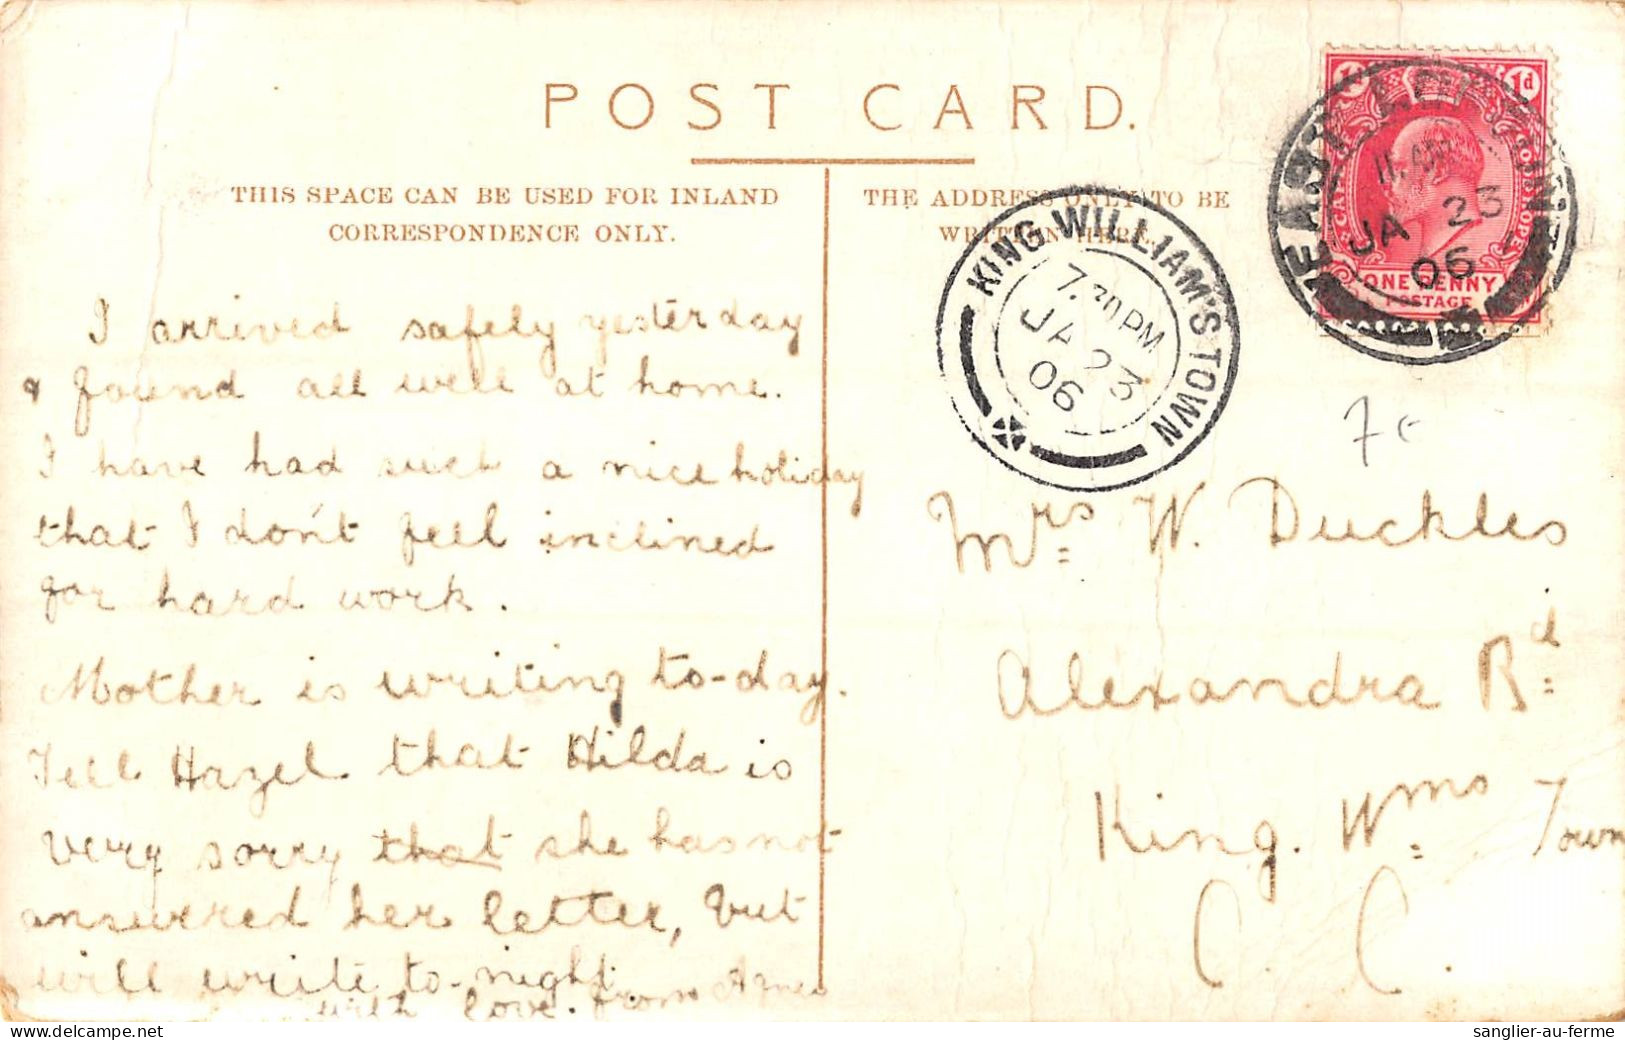 POST CARD.
THIS SPACE CAN BE USED FOR INLAND
CORRESPONDENCE ONLY.
THE ADDRESS ONLY TO BE
WRITTEN HERE.
I arrived safely yesterday
& found all well at home.
I have had such a nice holiday
that I don't feel inclined
for hard work.
Mother is writing to-day.
Tell Hazel that Hilda is
very sorry that she has not
answered her letter, but
will write to-night.
with love from Agnes
KING WILLIAM'S TOWN
7.30 PM
JA 23
06
1d 1d
CAPE OF GOOD HOPE
ONE PENNY
POSTAGE
11. AM
JA 23
06
7€
Mrs W. Duckles
Alexandra Rd
King. Wms Town
C. C.
delcampe.net
sanglier-au-ferme